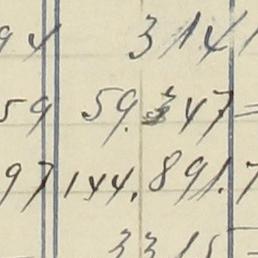 94 3141
59 59.347=
97 144.891.7
3315